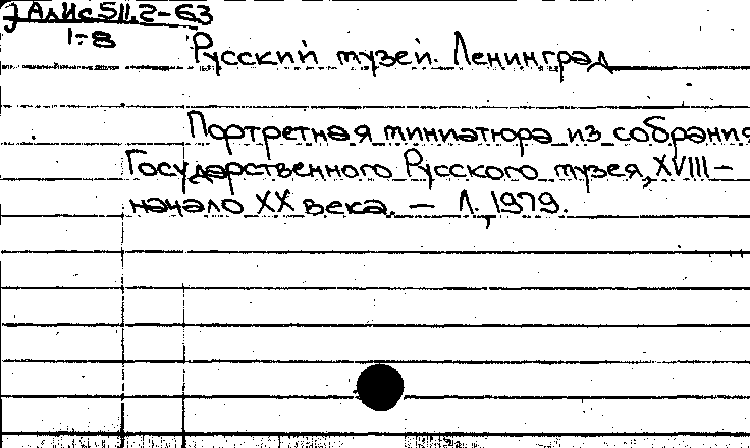 АлИс511.2-63
1-8
Русский музей. Ленинград
Портретная миниатюра из собрания
Государственного Русского музея, XVIII –
начало XX века. – Л., 1979.